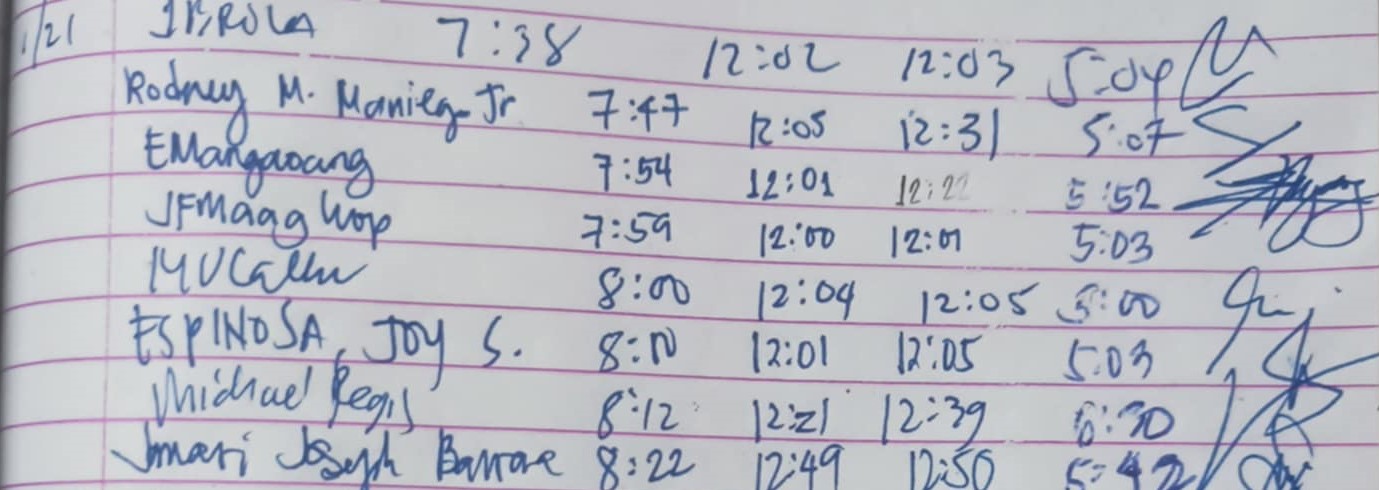 1/21 IBROLA 7:38 12:02 12:03 5:04
Rodney M. Manieg Jr 7:47 12:05 12:31 5:07
EMangaoang 7:54 12:01 12:22 5:52
JFMagghop 7:59 12:00 12:01 5:03
8:00 12:04 12:05 5:00
ESPINOSA, JOY S. 8:10 12:01 12:05 5:03
Michael Regis 8:12 12:21 12:39 6:30
Jmari Joseph Barroe 8:22 12:49 12:50 5:42